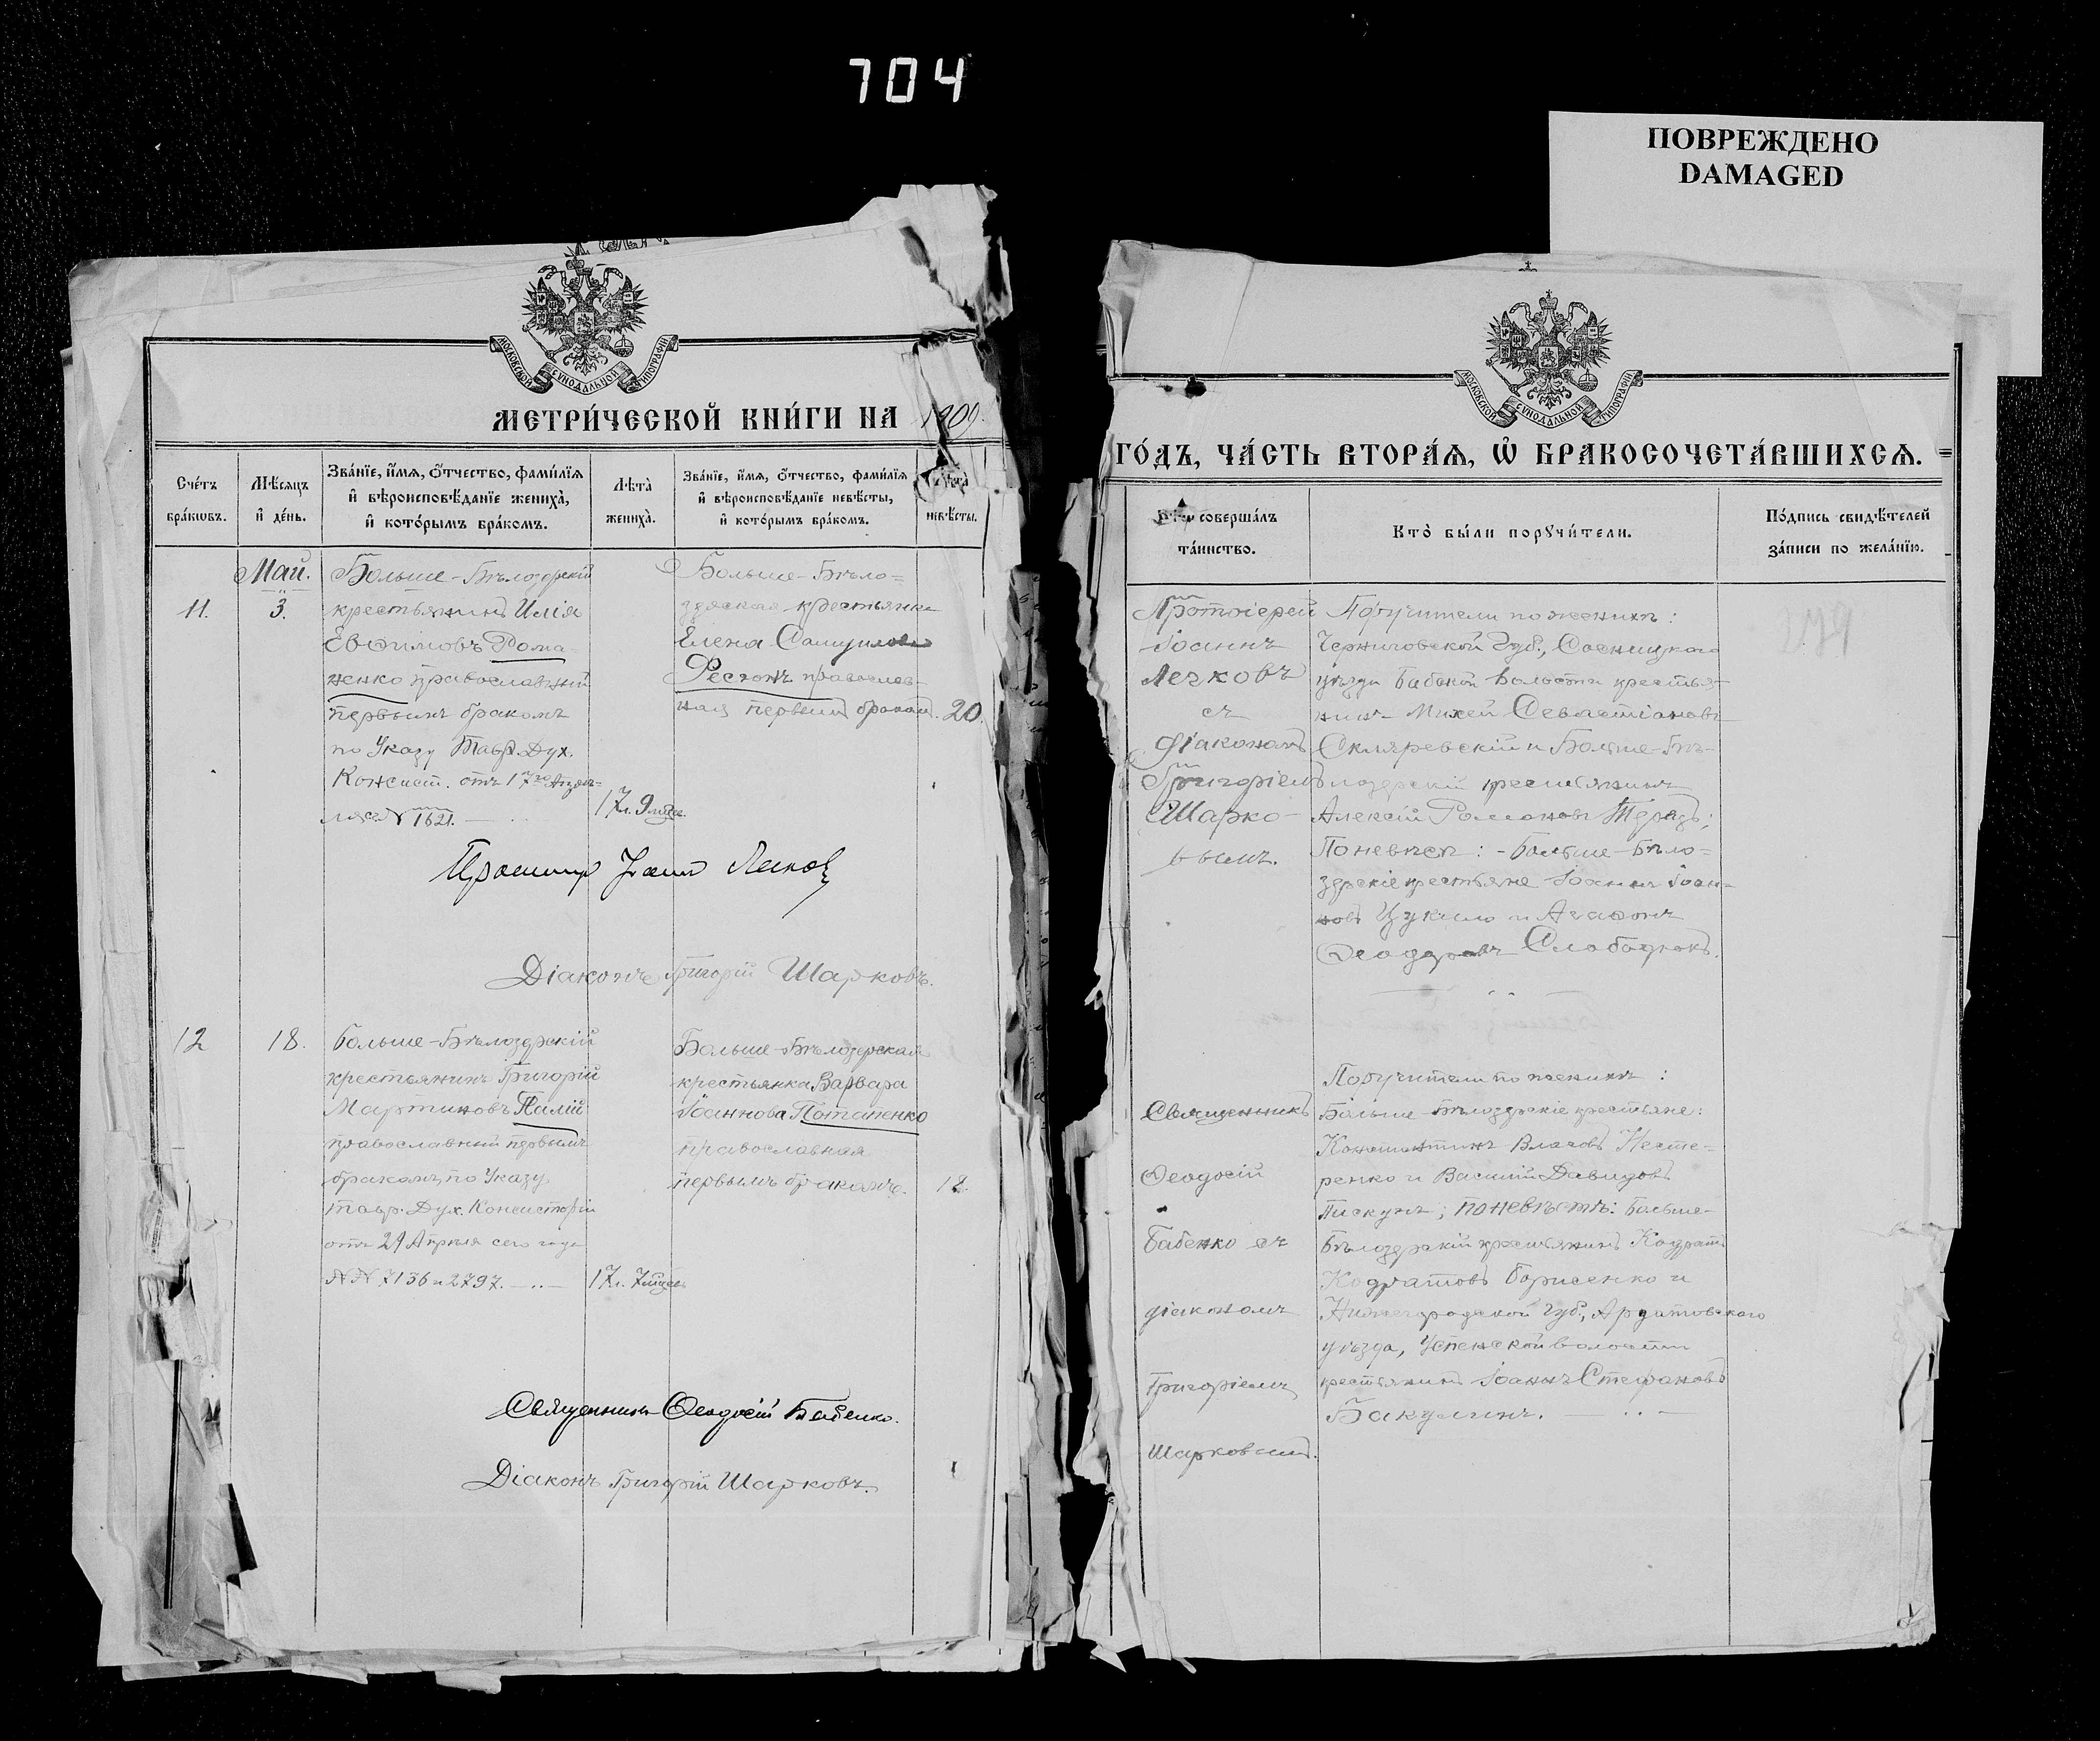 704
ПОВРЕЖДЕНО
DAMAGED
МОСКОВСКОЙ СѴНОДАЛЬНОЙ ТИПОГРАФІИ
МЕТРИ́ЧЕСКОЙ КНИ́ГИ НА 1909.
Сче́тъ бра́кωвъ.
Мѣ́сяцъ и҆ де́нь.
Зва́нїе, и҆́мя, ѻ҆́тчество, фами́лїя
и҆ вѣроисповѣ́данїе жениха̀,
и҆ кото́рымъ бра́комъ.
Лѣта̀ жениха̀.
Зва́нїе, и҆́мя, ѻ҆́тчество, фами́лїя
и҆ вѣроисповѣ́данїе невѣ́сты,
и҆ кото́рымъ бра́комъ.
Лѣта̀ невѣ́сты.
11.
Май.
3.
Больше-Бѣлозерскій
крестьянинъ Илія
Евѳимовъ Рома-
ненко православный
первымъ бракомъ
по Указу Тавр. Дух.
Консист. отъ 17го Апрѣ-
ля с. г. № 1621.
17 л. 9 мѣс.
Больше-Бѣло=
зерская крестьянка
Елена Самуилова
православ-
ная первымъ бракомъ.
20.
Протоіерей Іоаннъ Лечковъ
Діаконъ Григорій Шарковъ.
12
18.
Больше-Бѣлозерскій
крестьянинъ Григорій
Мартиновъ Палій
православный первымъ
бракомъ, по Указу
Тавр. Дух. Консисторіи
отъ 29 Апрѣля сего года
№№ 7136 и 2797.
17 л. 7 мѣс.
Больше-Бѣлозерская
крестьянка Варвара
Іоаннова Потапенко
православная
первымъ бракомъ.
18.
Священникъ Ѳеодосій Бабенко.
Діаконъ Григорій Шарковъ.
МОСКОВСКОЙ СѴНОДАЛЬНОЙ ТИПОГРАФІИ
ГО́ДЪ, ЧА́СТЬ ВТОРА́Я, Ѽ БРАКОСОЧЕТА́ВШИХСЯ.
Кто̀ соверша́лъ
та́инство.
Кто̀ бы́ли порꙋчи́тели.
По́дпись свидѣ́телей
за́писи по жела́нїю.
Протоіерей
Іоаннъ
Лечковъ
съ
діакономъ
Григоріемъ
Шарко-
вымъ.
Поручители по женихѣ:
Черниговской Губ., Сосницкаго
уѣзда Бабской волости крестья-
нинъ Михей Севастіановъ
Скляревскій и Больше-Бѣ-
лозерскій крестьянинъ
Алексій Романовъ
По невѣстѣ: - Больше-Бѣло=
зерскіе крестьяне Іоаннъ Іоан-
новъ Цукило и Агаѳонъ
Ѳеодоровъ Слободюкъ.
Священникъ
Ѳеодосій
Бабенко съ
діакономъ
Григоріемъ
Шарковымъ.
Поручители по женихѣ:
Больше-Бѣлозерскіе крестьяне:
Константинъ Власовъ Несте-
ренко и Василій Давидовъ
Пискунъ; по невѣстѣ: Больше-
Бѣлозерскій крестьянинъ Кодратъ
Кодратовъ Борисенко и
Нижегородской губ., Ардатовскаго
уѣзда, Успенской волости
крестьянинъ Іоаннъ Стефановъ
Бакулинъ.